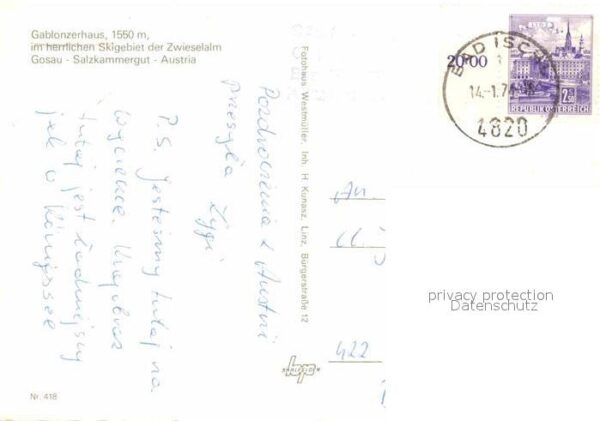 Gablonzerhaus, 1550 m,
im herrlichen Skigebiet der Zwieselalm
Gosau - Salzkammergut - Austria
Pozdrowienia z Austrii
przesyła
Zygi
P.S. Jesteśmy tutaj na
wycieczce. Krajobraz
tutaj jest ładniejszy
jak w Königssee
Nr. 418
Fotohaus Westmüller, Inh. H. Kunasz, Linz, Bürgerstraße 12
20·00
BAD ISCHL
14.-1.74
4820
REPUBLIK ÖSTERREICH
2.50
An.
422
privacy protection
Datenschutz